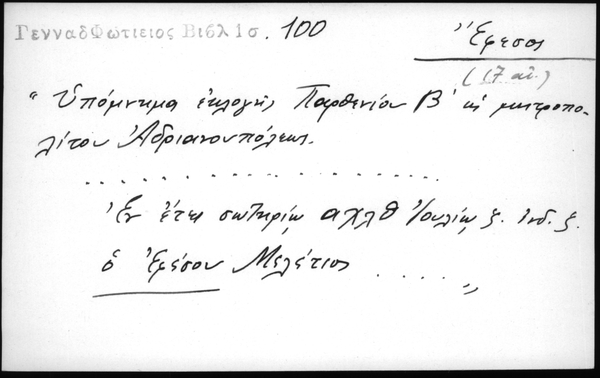 ΓενναδΦωτιειος Βιβλ 1σ. 100
Ἔφεσος
(17 αἰ.)
"Ὑπόμνημα ἐκλογῆς Παρθενίου Β' ὡς μητροπο-
λίτου Ἀδριανουπόλεως.
. . . . . . . . . . . . . . . . . .
Ἐν ἔτει σωτηρίῳ αχλθ Ἰουλίῳ ξ. ἰνδ. ξ.
ὁ Ἐφέσου Μελέτιος . . . . . "